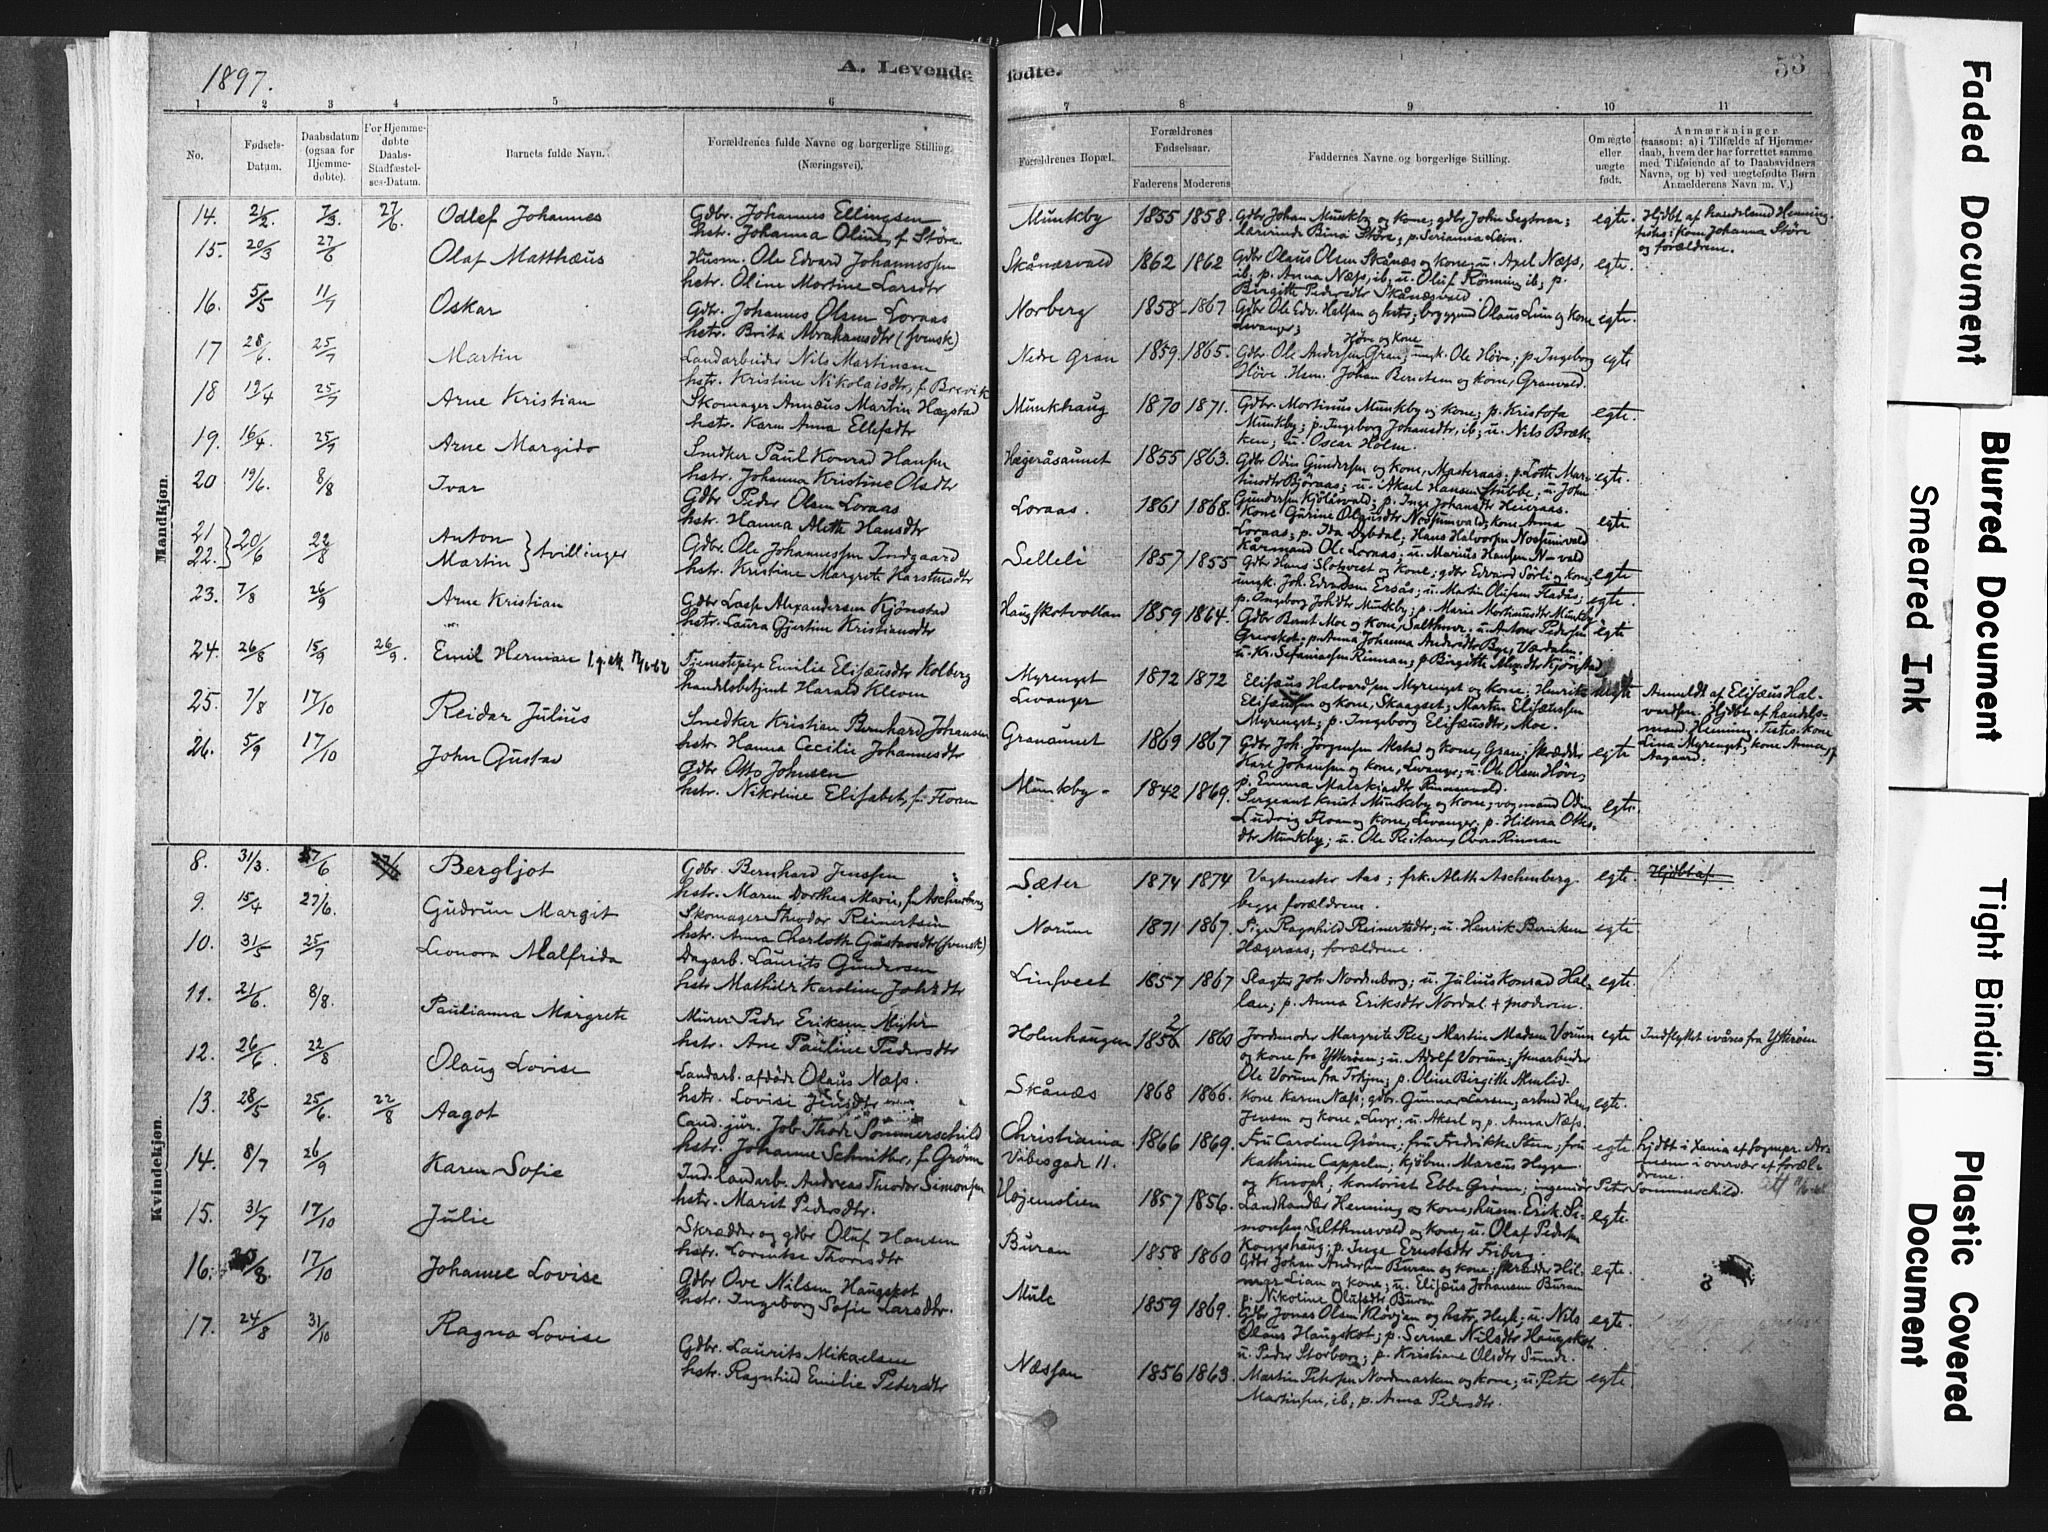 1897.
A. Levende
fødte.
53
1 2 3 4 5 6 7 8 9 10 11
No.
Fødsels-
Datum.
Daabsdatum
(ogsaa for
Hjemme-
døbte).
For Hjemme-
døbte
Daabs-
Stadfæstel-
ses-Datum.
Barnets fulde Navn.
Forældrenes fulde Navne og borgerlige Stilling.
(Næringsvei).
Forældrenes Bopæl.
Forældrenes
Fødselsaar.
Faderens Moderens
Faddernes Navne og borgerlige Stilling.
Om ægte
eller
uægte
født.
Anmærkninger
(saasom: a) i Tilfælde af Hjemme-
daab, hvem der har forrettet samme
med Tilføiende af to Daabsvidners
Navne, og b) ved uægtefødte Børn
Anmelderens Navn m. V.)
Mandkjøn.
14. 2/2. 7/3. 27/6. Odlef Johannes
Gdbr. Johannes Ellingsen
hstr. Johanna Oline, f. Støre
Munkby 1855 1858.
Gdbr Johan Munkby og kone; gdbr John Segtnan;
lærerinde Bina Støre; p. Serianna Lein.
egte.
Hjdbt af handelsmd Henning.
kone Johanna Støre
og forældrene.
15. 20/3 27/6 Olaf Matthæus
Husm. Ole Edvard Johannessen
hstr. Oline Martine Larsdtr
Skånæsvald 1862 1862
Gdbr Olaus Olsen Skånæs og kone; u. Axel Næss,
ib; p. Anna Næss, ib; u. Oluf Rønning ib; p.
Birgitte Pedersdtr Skånæsvald.
egte.
16. 5/5 11/7 Oskar
Gdbr. Johannes Olsen Loraas
hstr. Brita Abrahamsdtr (svensk)
Norberg 1858 1867
Gdbr Ole Edv. Halsan og hstr; brygges Olaus Lun og kone
Levanger;
egte.
17 28/6. 25/7 Martin
Landarbeider Nils Martinsen
hstr. Kristine Nikolaisdtr, f. Brevik
Nedre Gran 1859 1865.
Høve og kone
Gdbr. Ole Andersen Gran; ungk. Ole Høve; p. Ingeborg
Høve. Hsm. Johan Berntsen og kone, Granvald.
egte
18 19/4 25/7 Arne Kristian
Skomager Annæus Martin Hægstad
hstr. Karen Anna Ellefsdtr
Munkhaug 1870 1871.
Gdbr. Mortinus Munkby og kone; p. Kristofa
Munkby; p. Ingeborg Johansdtr, ib; u. Nils Bræk-
ken; u. Oscar Holm.
egte.
19. 16/4. 25/7 Arne Margido
Snedker Paul Konrad Hansen
hstr. Johanna Kristine Olsdtr
Hægeråsaunet 1855 1863.
Gdbr Odin Gundersen og kone, Masteraas; p. Lotte Mar-
tinsdtr Bjøraas; u. Aksel Hansen Stubbe; u. John
Gundersen Kjølåsvald; p. Inge Johansdtr Heieraas.
egte.
20 19/6. 8/8 Ivar
Gdbr Peder Olsen Loraas
hstr. Hanna Aleth Hansdtr
Loraas. 1861 1868.
Kone Gurine Olausdtr Nossumvald; kone Anna
Loraas; p. Ida Dybdal; Hans Halvorsen Nossumvald
Kårmand Ole Loraas; u. Marius Hansen N-vald
egte
21 22. 20/6 22/8 Anton
Martin } tvillinger
Gdbr. Ole Johannessen Indgaard
hstr. Kristine Margrete Karstensdtr
Selleli 1857 1855
Gdbr Hans Slotsveet og kone; gdbr Edvard Sørli og kone;
ungk. Joh. Edvardsen Ersås; u. Martin Olufsen Fladås;
p. Ingeborg Johsdtr Munkby; p. Maria Mortinusdtr Munkby
egte
egte.
23. 7/8 26/9 Arne Kristian
Gdbr Lasse Alexandersen Kjønstad
hstr. Laura Gjertine Kristiansdtr
Haugskotvollan 1859 1864.
Gdbr Bernt Moe og kone, Salthmr. u. Anton Pedersen
Grevskot; p. Anna Johanna Andersdtr Bye, Værdalen.
u. Kr. Sefaniassen Rinnan; p. Birgitte Alexdtr Kjønstad
egte
24. 26/8 15/9 26/9. Emil Herman
Tjenestepige Emilie Elisæusdtr Kolberg
handelsbetjent Harald Kleven
Myrenget
Levanger
1872 1872
Elisæus Halvardsen Myrenget og kone; Henrik
Elisæussen og kone, Skaaset; Martin Elisæussen
Myrenget; p. Ingeborg Elisæusdtr, Moe.
uegte
Anmeldt af Elisæus Hal-
vardsen. Hjdbt af handels-
mand Henning. Testes: kone
Lina Myrenget, kone Anna
Aagaard.
25. 7/8 17/10 Reidar Julius
Snedker Kristian Bernhard Johansen
hstr. Hanna Cecilie Johannesdtr
Granaunet 1869 1867
Gdbr. Joh. Jørgensen Alstad og kone, Gran; skrædder
Karl Johansen og kone, Levanger; u. Ole Olsen Høve;
p. Emma Malakiasdtr Rinnanvald.
egte
26. 5/9 17/10 John Gustav
Gdbr Otto Johnsen
hstr. Nikoline Elisabet, f. Floan
Munkby 1842 1869.
Sergeant Knut Munkby og kone; vognmand Odin
Ludvig Floan og kone, Levanger; p. Hilma Otto-
dtr Munkby; u. Ole Reitan, Øvre Rinnan
egte.
Kvindekjøn.
8. 31/3. 27/6 27/6 Bergljot
Gdbr. Bernhard Jenssen
hstr. Maren Dorthea Marie, f. Aschenberg
Sæter 1874 1874
Vagtmester Aas; frk. Aleth Aschenberg
begge forældrene.
egte.
Hjdbt af
9. 15/4 27/6. Gudrun Margit
Skomager Theodor Reinertsen
hstr. Anna Charlotte Gustavsdtr (svensk)
Norum 1871 1867.
Pige Ragnhild Reinertsdtr; u. Henrik Berntsen
Hægeraas; forældrene.
egte
10. 31/5 25/7 Leonora Malfrida
Dagarb. Laurits Gundersen
hstr Mathilde Karoline Johsdtr
Linsveet 1857 1867
Slagter Joh. Nordenborg; u. Julius Konrad Hal-
lan; p. Anna Eriksdtr Nordal. + moderen.
egte.
11. 21/6. 8/8. Paulianna Margrete
Murer Peder Eriksen Myhr
hstr. Ane Pauline Pedersdtr
Holmhaugen 1856 2 1860
Jordmoder Margrete Ree; Martin Madsen Vorum
og kone fra Ytterøen; u. Adolf Vorum; stenarbeider
Ole Vorum fra Trhjm; p. Oline Birgitte Almlid.
egte
Indflyttet ivåres fra Ytterøen
12. 26/6 22/8 Olaug Lovise
Landarb. afdøde Olaus Næss.
hstr. Lovise Jensdtr
Skånæs 1868 1866.
Kone Karen Næss; gdbr. Gunnar Larsen; arbmd Hans
Jensen og kone, Levgr; u. Aksel og p. Anna Næss.
egte.
13. 28/5 25/6. 22/8 Aagot
Cand. jur. Job Thode Sommerschild
hstr. Johanne Schnitler, f. Grønn
Christiania
Vibesgade 11.
1866 1869.
Fru Caroline Grønn; fru Fredrikke Steen; fru
Kathrine Cappelen; kjøbm. Marcus Heggen
og Knoph; kontorist Ebbe Grønn; ingeniør Peter Sommerschild.
egte.
hjdbt i Xania af sognepr. Ar-
nesen i overvær af foræl-
drene.
14. 8/7 26/9 Karen Sofie
Ind. landarb. Andreas Theodor Simonsen
hstr. Marit Pedersdtr.
Højemslien 1857 1856.
Landhandler Henning og kone; husm. Erik Si-
monsen Salthmrvald og kone; u. Olaf Pedersen
Kongshaug; p. Inge Ernstsdtr Friberg.
egte.
15. 31/7 17/10 Julie
Skrædder og gdbr Oluf Hansen
hstr. Lorentse Thorsdtr
Buran 1858 1860
Gdbr Johan Andersen Buran og kone; skrædder Hil-
mar Lian og kone; u. Elisæus Johansen Buran
p. Nikoline Olufsdtr Buran
egte.
16. 17/10 Johanne Lovise
Gdbr Ove Nilsen Haugskot
hstr. Ingeborg Sofie Larsdtr.
Mule 1859 1869.
Gdbr Jonas Olsen og hstr, Hegle; u. Nils
Olaus Haugskot; p. Serine Nilsdtr Haugskot
u. Peder Storborg; p. Kristiane Olsdtr Sunde.
egte.
17. 24/8 31/10 Ragna Lovise
Gdbr. Laurits Mikaelsen
hstr. Ragnhild Emilie Petersdtr
Næssan 1856 1863.
Martin Petersen Nordmarken og kone; u. Peter
Martinsen, ib; p. Anna Pedersdtr.
egte.
Faded Document
Blurred Document
Smeared Ink
Tight Bindin
Plastic Covered
Document